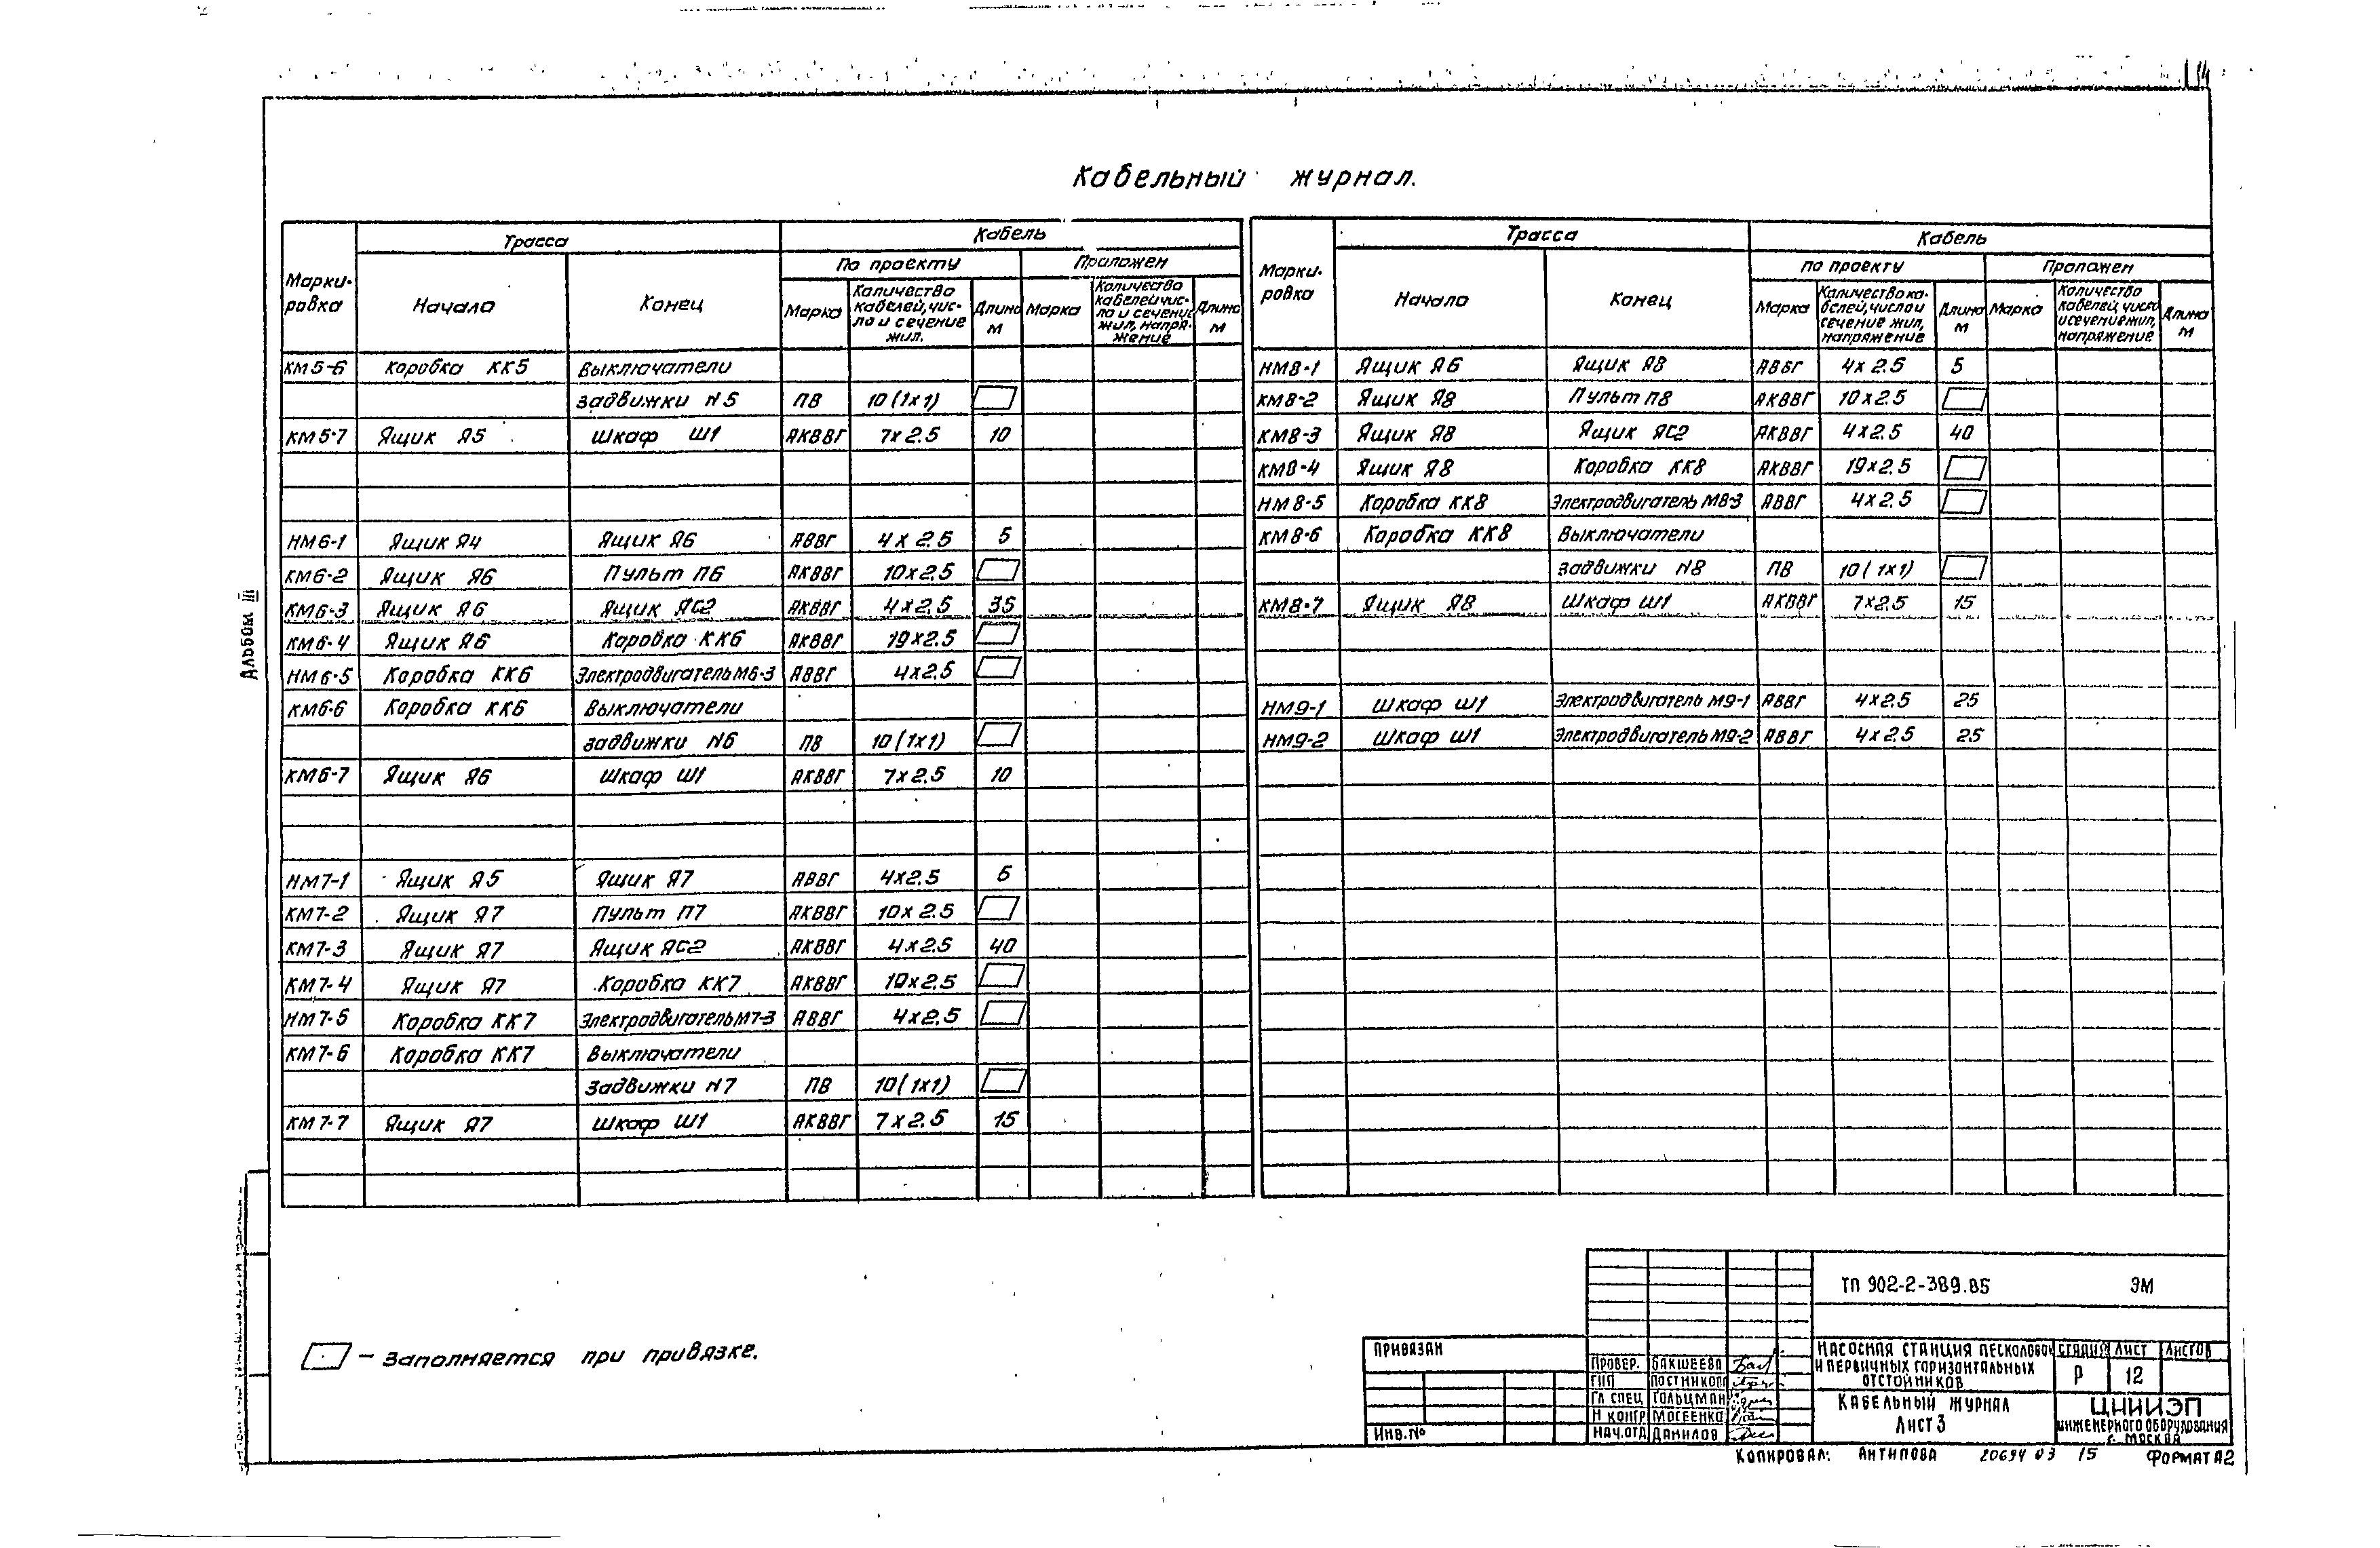 14
Кабельный журнал.
Марки-ровка | Трасса | Кабель
Начало | Конец | По проекту | Проложен
Марка | Количество кабелей, чис-ло и сечение жил. | Длина м | Марка | Количество кабелей чис-ло и сечение жил, напря-жение | Длина м
КМ5-6 Коробка КК5 Выключатели
задвижки N5 ПВ 10(1х1)
КМ5-7 Ящик Я5 Шкаф Ш1 АКВВГ 7х2.5 10
НМ6-1 Ящик Я4 Ящик Я6 АВВГ 4х2.5 5
КМ6-2 Ящик Я6 Пульт П6 АКВВГ 10х2.5
КМ6-3 Ящик Я6 Ящик ЯС2 АКВВГ 4х2.5 35
КМ6-4 Ящик Я6 Коробка КК6 АКВВГ 19х2.5
НМ6-5 Коробка КК6 Электродвигатель М6-3 АВВГ 4х2.5
КМ6-6 Коробка КК6 Выключатели
задвижки N6 ПВ 10(1х1)
КМ6-7 Ящик Я6 Шкаф Ш1 АКВВГ 7х2.5 10
НМ7-1 Ящик Я5 Ящик Я7 АВВГ 4х2.5 5
КМ7-2 Ящик Я7 Пульт П7 АКВВГ 10х2.5
КМ7-3 Ящик Я7 Ящик ЯС2 АКВВГ 4х2.5 40
КМ7-4 Ящик Я7 Коробка КК7 АКВВГ 19х2.5
НМ7-5 Коробка КК7 Электродвигатель М7-3 АВВГ 4х2.5
КМ7-6 Коробка КК7 Выключатели
Задвижки N7 ПВ 10(1х1)
КМ7-7 Ящик Я7 Шкаф Ш1 АКВВГ 7х2.5 15
Марки-ровка | Трасса | Кабель
Начало | Конец | по проекту | Проложен
Марка | Количество ка-белей, число и сечение жил, напряжение | Длина м | Марка | Количество кабелей, число и сечение жил, напряжение | Длина м
НМ8-1 Ящик Я6 Ящик Я8 АВВГ 4х2.5 5
КМ8-2 Ящик Я8 Пульт П8 АКВВГ 10х2.5
КМ8-3 Ящик Я8 Ящик ЯС2 АКВВГ 4х2.5 40
КМ8-4 Ящик Я8 Коробка КК8 АКВВГ 19х2.5
НМ8-5 Коробка КК8 Электродвигатель М8-3 АВВГ 4х2.5
КМ8-6 Коробка КК8 Выключатели
задвижки N8 ПВ 10(1х1)
КМ8-7 Ящик Я8 Шкаф Ш1 АКВВГ 7х2.5 15
НМ9-1 Шкаф Ш1 Электродвигатель М9-1 АВВГ 4х2.5 25
НМ9-2 Шкаф Ш1 Электродвигатель М9-2 АВВГ 4х2.5 25
Альбом III
– Заполняется при привязке.
Привязан
Инв.№
Провер. Бакшеева
ГИП Постникова
Гл спец Гольцман
Н контр Мосеенко
Нач.отд Данилов
ТП 902-2-389.85 ЭМ
Насосная станция песколовок
и первичных горизонтальных
отстойников
Стадия Лист Листов
Р 12
Кабельный журнал
Лист 3
ЦНИИЭП
инженерного оборудования
г. Москва
Копировал: Антипова 20694 03 15 Формат А2